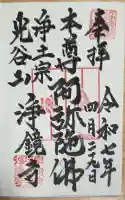 奉拝
令和七年
四月二九日
本尊阿弥陀佛
浄土宗
光谷山
浄鏡寺